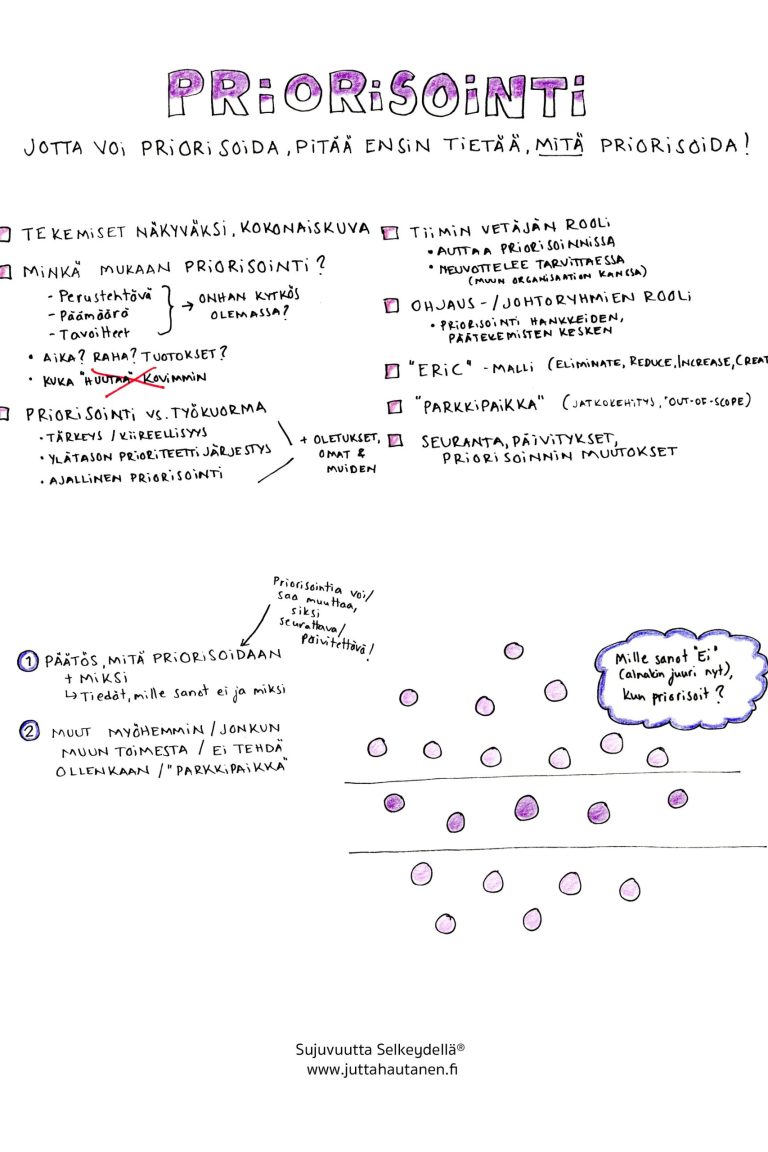 PRiORiSOiNTi
JOTTA VOi PRiORiSOiDA, PiTÄÄ ENSiN TiETÄÄ, MiTÄ PRiORiSOiDA!
TEKEMiSET NÄKYVÄKSi, KOKONAiSKUVA
MiNKÄ MUKAAN PRiORiSOiNTi?
- Perustehtävä
- Päämäärä
- Tavoitteet
→ ONHAN KYTKÖS
OLEMASSA?
• AiKA? RAHA? TUOTOKSET?
• KUKA "HUUTAA" KOViMMiN
PRiORiSOiNTi vs. TYÖKUORMA
• TÄRKEYS / KiiREELLiSYYS
• YLÄTASON PRiORiTEETTiJÄRJESTYS
• AJALLiNEN PRiORiSOiNTi
+ OLETUKSET,
OMAT &
MUiDEN
TiiMiN VETÄJÄN ROOLi
• AUTTAA PRiORiSOiNNiSSA
• NEUVOTTELEE TARViTTAESSA
(MUUN ORGANiSAATiON KANSSA)
OHJAUS- / JOHTORYHMiEN ROOLi
• PRiORiSOiNTi HANKKEiDEN,
PÄÄTEKEMiSTEN KESKEN
"ERiC" -MALLi (ELiMiNATE, REDUCE, INCREASE, CREAT
"PARKKiPAiKKA" (JATKOKEHiTYS, "OUT-OF-SCOPE)
SEURANTA, PÄiViTYKSET,
PRiORiSOiNNiN MUUTOKSET
Priorisointia voi/
saa muuttaa,
siksi
seurattava/
päivitettävä!
1 PÄÄTÖS, MiTÄ PRiORiSOiDAAN
+ MiKSi
↳ Tiedät, mille sanot ei ja miksi
2 MUUT MYÖHEMMiN / JONKUN
MUUN TOiMESTA / Ei TEHDÄ
OLLENKAAN / "PARKKiPAiKKA"
Mille sanot "Ei"
(ainakin juuri nyt),
kun priorisoit?
Sujuvuutta Selkeydellä®
www.juttahautanen.fi